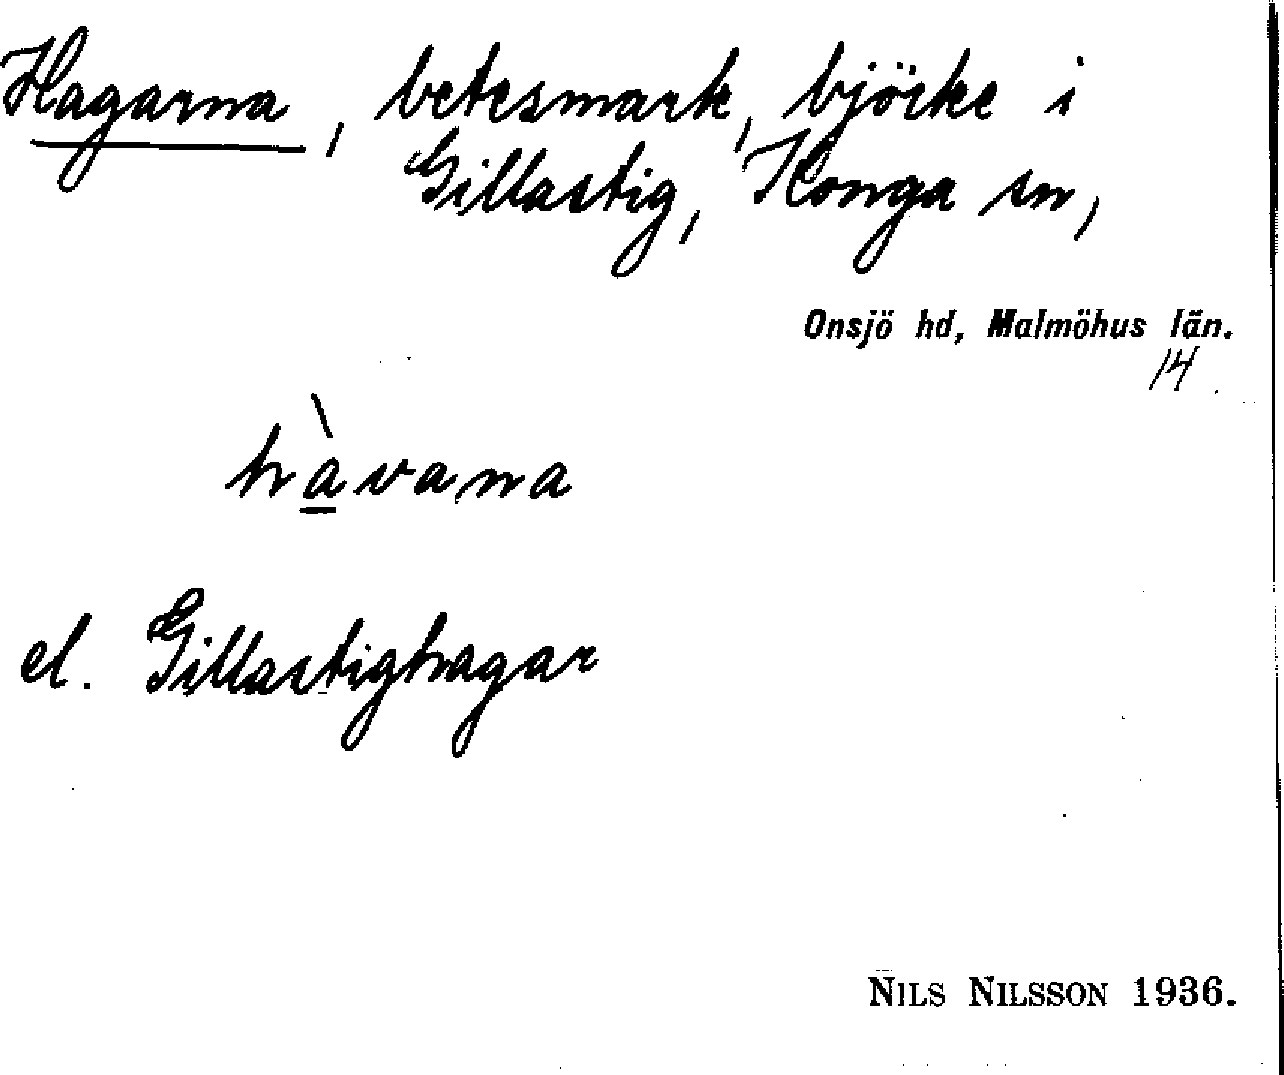 Hagarna, betesmark, björke i
Gillastig, Konga sn,
Onsjö hd, Malmöhus län.
14
hàvana
el. Gillastighagar
NILS NILSSON 1936.